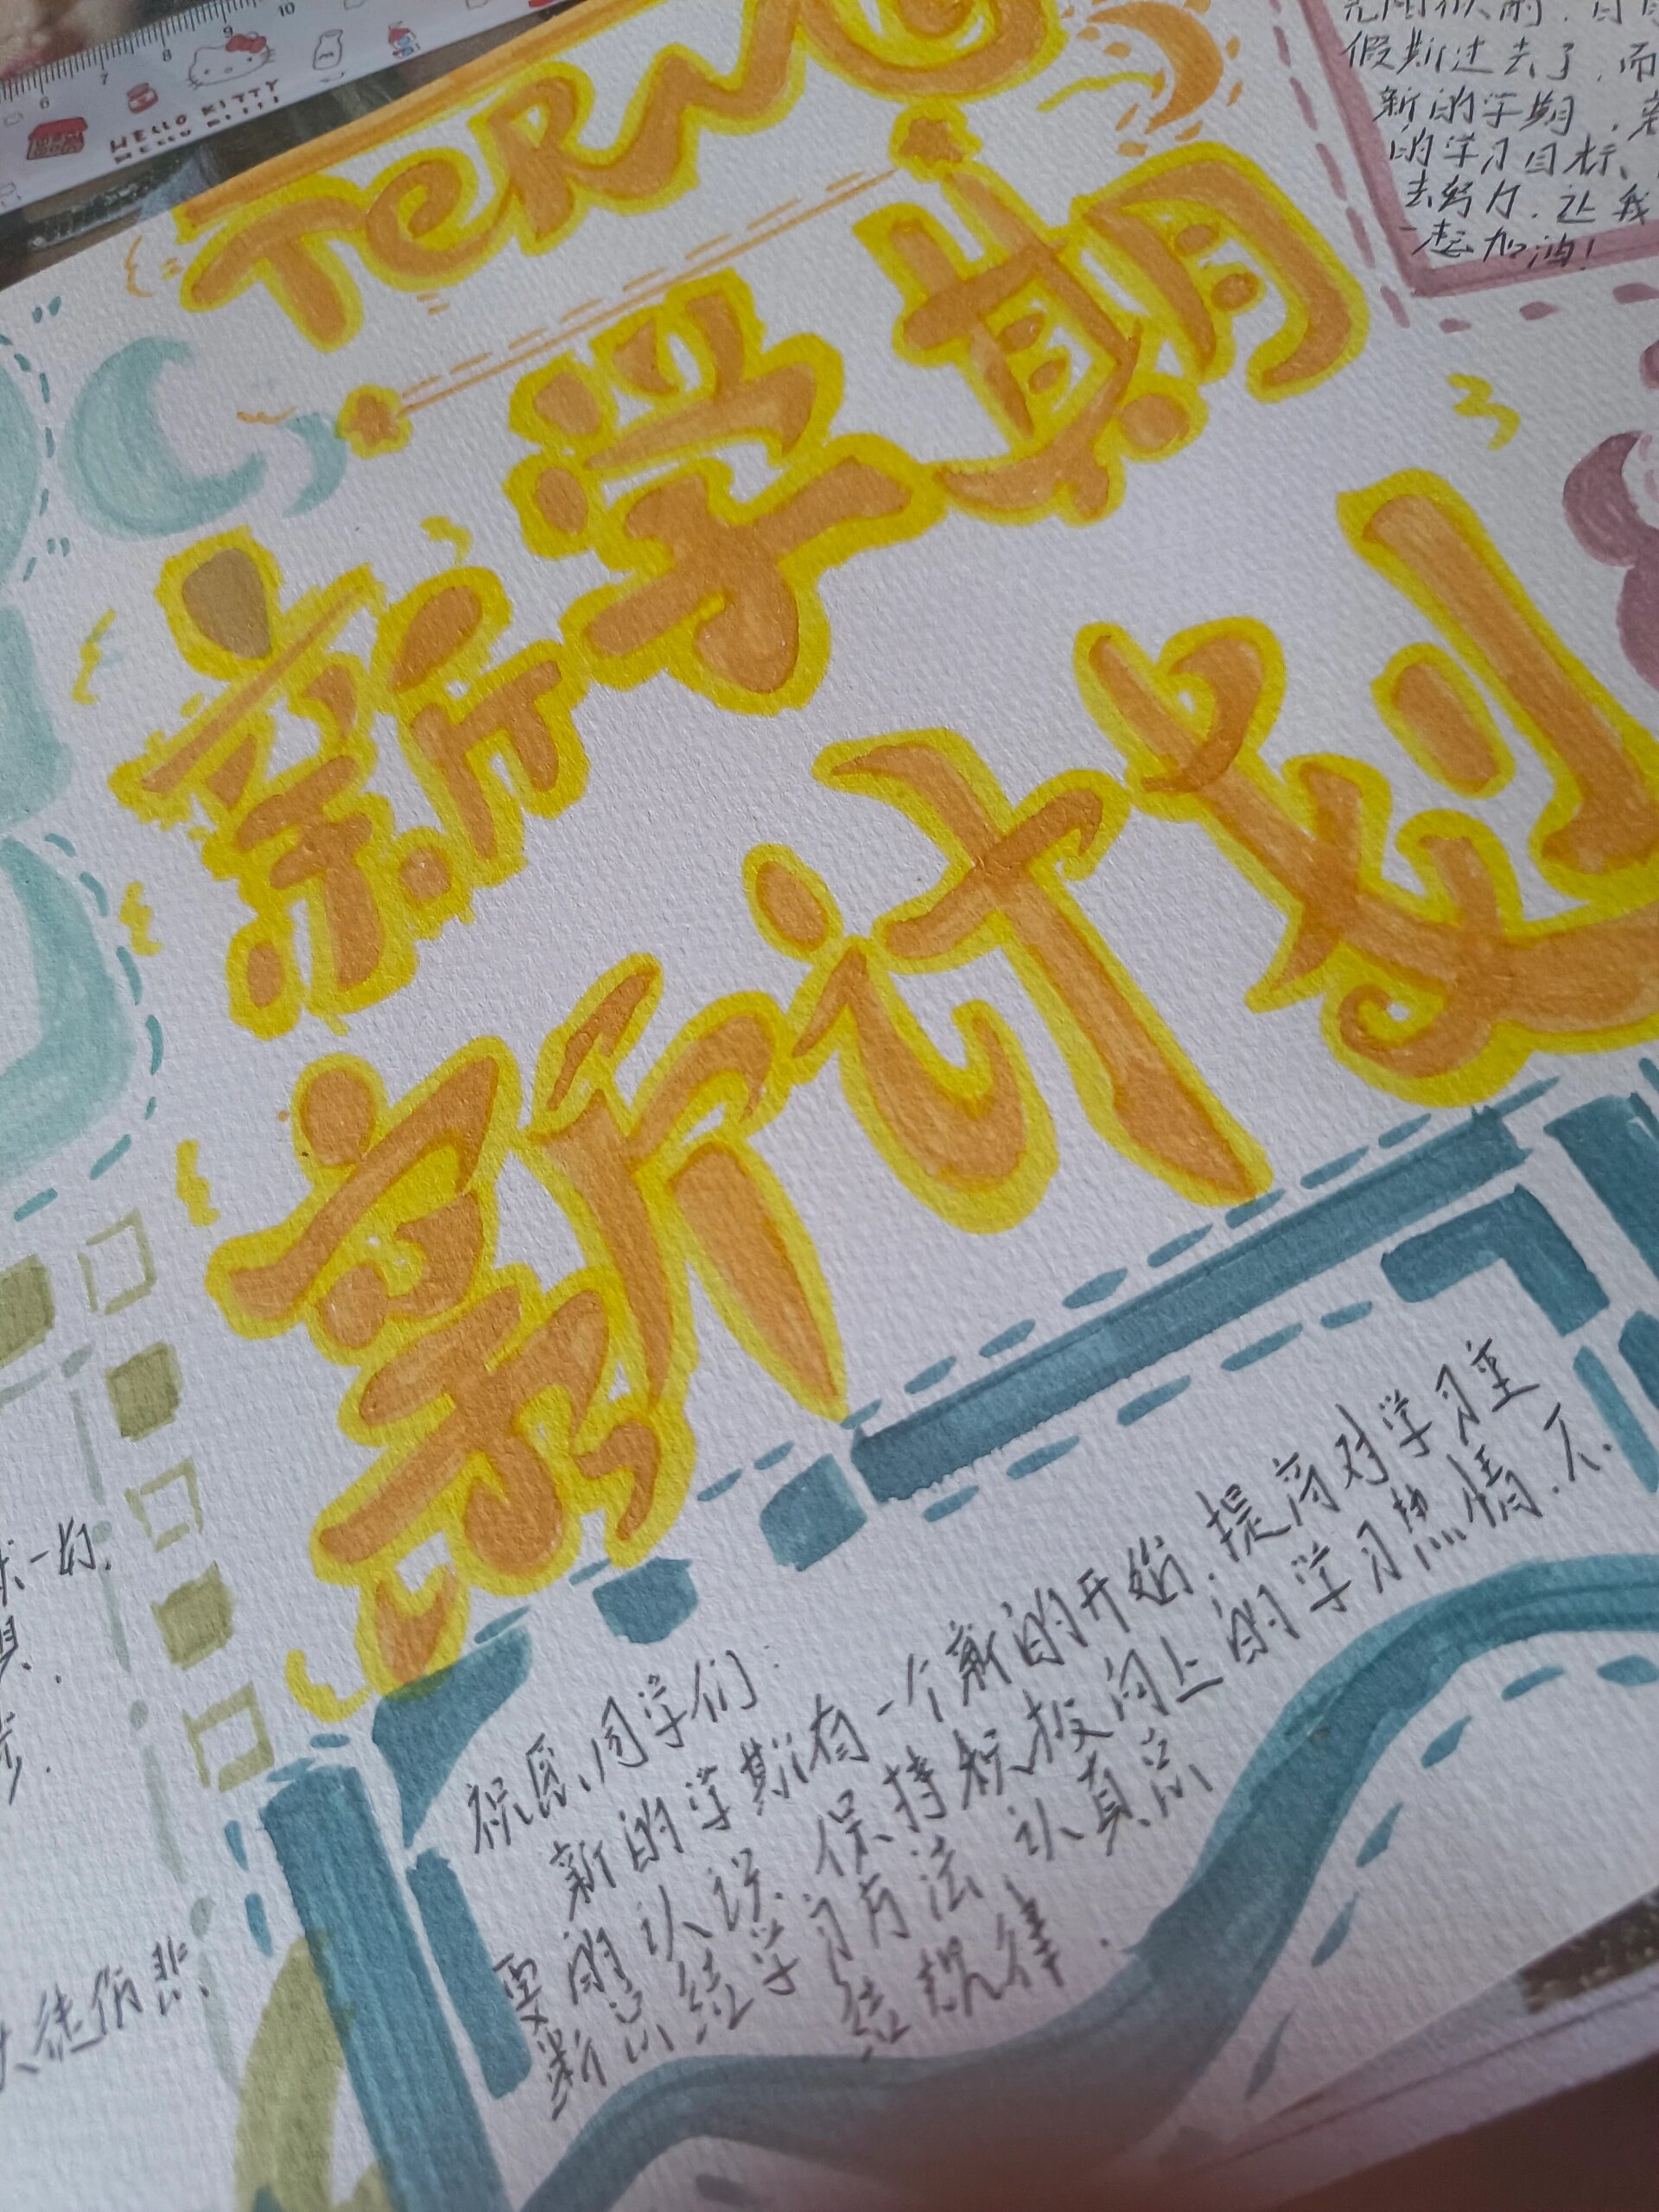 6 7 8 9 10
HELLO KITTY
HELLO KITTY
TERM
新学期
新计划
假期过去了，而
新的学期，新
的学习目标、
去努力，让我
一起加油！
祝愿同学们：
新的学期有一个新的开始，提高对学习重
要的认识，保持积极向上的学习热情，不
断总结学习方法，认真总
结规律．
一场．
徒伤悲